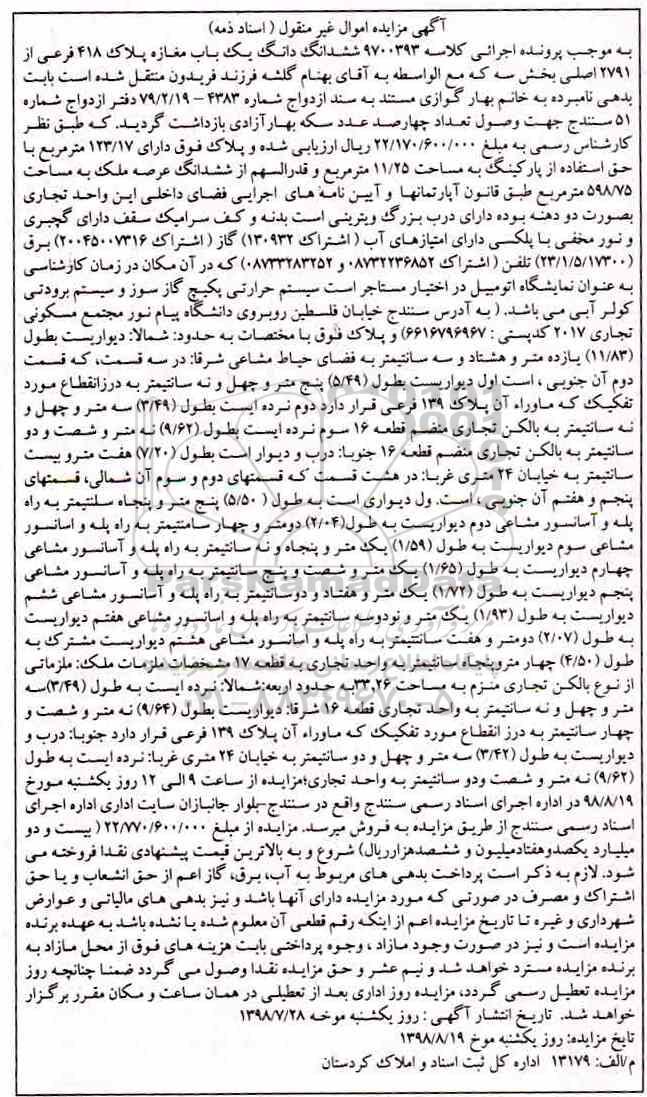 آگهی مزایده اموال غیر منقول ( اسناد ذمه)
به موجب پرونده اجرائی کلاسه ۹۷۰۰۳۹۳ ششدانگ دانگ یک باب مغازه پلاک ۴۱۸ فرعی از
۲۷۹۱ اصلی بخش سه که مع الواسطه به آقای بهنام گلشه فرزند فریدون منتقل شده است بابت
بدهی نامبرده به خانم بهار گوازی مستند به سند ازدواج شماره ۴۳۸۳ – ۷۹/۲/۱۹ دفتر ازدواج شماره
۵۱ سنندج جهت وصول تعداد چهارصد عدد سکه بهار آزادی بازداشت گردید. که طبق نظر
کارشناس رسمی به مبلغ ۲۲/۱۷۰/۶۰۰/۰۰۰ ریال ارزیابی شده و پلاک فوق دارای ۱۲۳/۱۷ مترمربع با
حق استفاده از پارکینگ به مساحت ۱۱/۲۵ مترمربع و قدرالسهم از ششدانگ عرصه ملک به مساحت
۵۹۸/۷۵ مترمربع طبق قانون آپارتمانها و آیین نامه های اجرایی فضای داخلی این واحد تجاری
بصورت دو دهنه بوده دارای درب بزرگ ویترینی است بدنه و کف سرامیک سقف دارای گچبری
و نور مخفی با پلکسی دارای امتیازهای آب ( اشتراک ۱۳۰۹۳۲) گاز ( اشتراک ۲۰۰۴۵۰۰۷۳۱۶) برق
(۲۳/۱/۵/۱۷۳۰۰) تلفن ( اشتراک ۰۸۷۳۲۲۳۶۸۵۲ و ۰۸۷۳۳۲۸۳۲۵۲) که در آن مکان در زمان کارشناسی
به عنوان نمایشگاه اتومبیل در اختیار مستاجر است سیستم حرارتی پکیج گاز سوز و سیستم برودتی
کولر آبی می باشد. ( به آدرس سنندج خیابان فلسطین روبروی دانشگاه پیام نور مجتمع مسکونی
تجاری ۲۰۱۷ کدپستی : ۶۶۱۶۷۹۶۹۶۷) و پلاک فوق با مختصات به حدود: شمالا: دیواریست بطول
(۱۱/۸۳) یازده متر و هشتاد و سه سانتیمتر به فضای حیاط مشاعی شرقا: در سه قسمت، که قسمت
دوم آن جنوبی ، است اول دیواریست بطول (۵/۴۹) پنج متر و چهل و نه سانتیمتر به درزانقطاع مورد
تفکیک که ماوراء آن پلاک ۱۳۹ فرعی قرار دارد دوم نرده ایست بطول (۳/۴۹) سه متر و چهل و
نه سانتیمتر به بالکن تجاری منضم قطعه ۱۶ سوم نرده ایست بطول (۹/۶۲) نه متر و شصت و دو
سانتیمتر به بالکن تجاری منضم قطعه ۱۶ جنوبا: درب و دیوار است بطول (۷/۲۰) هفت مترو بیست
سانتیمتر به خیابان ۲۴ متری غربا: در هشت قسمت که قسمتهای دوم و سوم آن شمالی، قسمتهای
پنجم و هفتم آن جنوبی ، است. ول دیواری است به طول ( ۵/۵۰) پنج متر و پنجاه سلنتیمتر به راه
پله و آسانسور مشاعی دوم دیواریست به طول(۲/۰۴) دومتر و چهار سامنتیمتر به راه پله و اسانسور
مشاعی سوم دیواریست به طول (۱/۵۹) یک متر و پنجاه و نه سانتیمتر به راه پله و آسانسور مشاعی
چهارم دیواریست به طول (۱/۶۵) یک متر و شصت و پنج سانتیمتر به راه پله و آسانسور مشاعی
پنجم دیواریست به طول (۱/۷۲) یک متر و هفتاد و دوسانتیمتر به راه پله و آسانسور مشاعی ششم
دیواریست به طول (۱/۹۳) یک متر و نودوسه سانتیمتر به راه پله و اسانسور مشاعی هفتم دیواریست
به طول (۲/۰۷) دومتر و هفت سانتتیمتر به راه پله و اسانسور مشاعی هشتم دیواریست مشترک به
طول (۴/۵۰) چهار متروپنجاه سانتیمتر به واحد تجاری به قطعه ۱۷ مشخصات ملزمات ملک: ملزماتی
از نوع بالکن تجاری منزم به مساحت ۳۳.۲۶ حدود اربعه:شمالا: نرده ایست به طول (۳/۴۹)سه
متر و چهل و نه سانتیمتر به واحد تجاری قطعه ۱۶ شرقا: دیواریست بطول (۹/۶۴) نه متر و شصت و
چهار سانتیمتر به درز انقطاع مورد تفکیک که ماوراء آن پلاک ۱۳۹ فرعی قرار دارد جنوبا: درب و
دیواریست به طول (۳/۴۲) سه متر و چهل و دو سانتیمتر به خیابان ۲۴ متری غربا: نرده ایست به طول
(۹/۶۲) نه متر و شصت ودو سانتیمتر به واحد تجاری؛مزایده از ساعت ۹ الی ۱۲ روز یکشنبه مورخ
۹۸/۸/۱۹ در اداره اجرای اسناد رسمی سنندج واقع در سنندج-بلوار جانبازان سایت اداری اداره اجرای
اسناد رسمی سنندج از طریق مزایده به فروش میرسد. مزایده از مبلغ ۲۲/۷۷۰/۶۰۰/۰۰۰ ( بیست و دو
میلیارد یکصدوهفتادمیلیون و ششصدهزارریال) شروع و به بالاترین قیمت پیشنهادی نقدا فروخته می
شود. لازم به ذکر است پرداخت بدهی های مربوط به آب، برق، گاز اعم از حق انشعاب و یا حق
اشتراک و مصرف در صورتی که مورد مزایده دارای آنها باشد و نیز بدهی های مالیاتی و عوارض
شهرداری و غیره تا تاریخ مزایده اعم از اینکه رقم قطعی آن معلوم شده یا نشده باشد به عهده برنده
مزایده است و نیز در صورت وجود مازاد ، وجوه پرداختی بابت هزینه های فوق از محل مازاد به
برنده مزایده مسترد خواهد شد و نیم عشر و حق مزایده نقدا وصول می گردد ضمنا چنانچه روز
مزایده تعطیل رسمی گردد، مزایده روز اداری بعد از تعطیلی در همان ساعت و مکان مقرر برگزار
خواهد شد.  تاریخ انتشار آگهی : روز یکشنبه موخه ۱۳۹۸/۷/۲۸
تایخ مزایده: روز یکشنبه موخ ۱۳۹۸/۸/۱۹
م/الف: ۱۳۱۷۹  اداره کل ثبت اسناد و املاک کردستان
ParsNamadData
۰۲۱-۸۸۳۴۹۶۷۰-۵